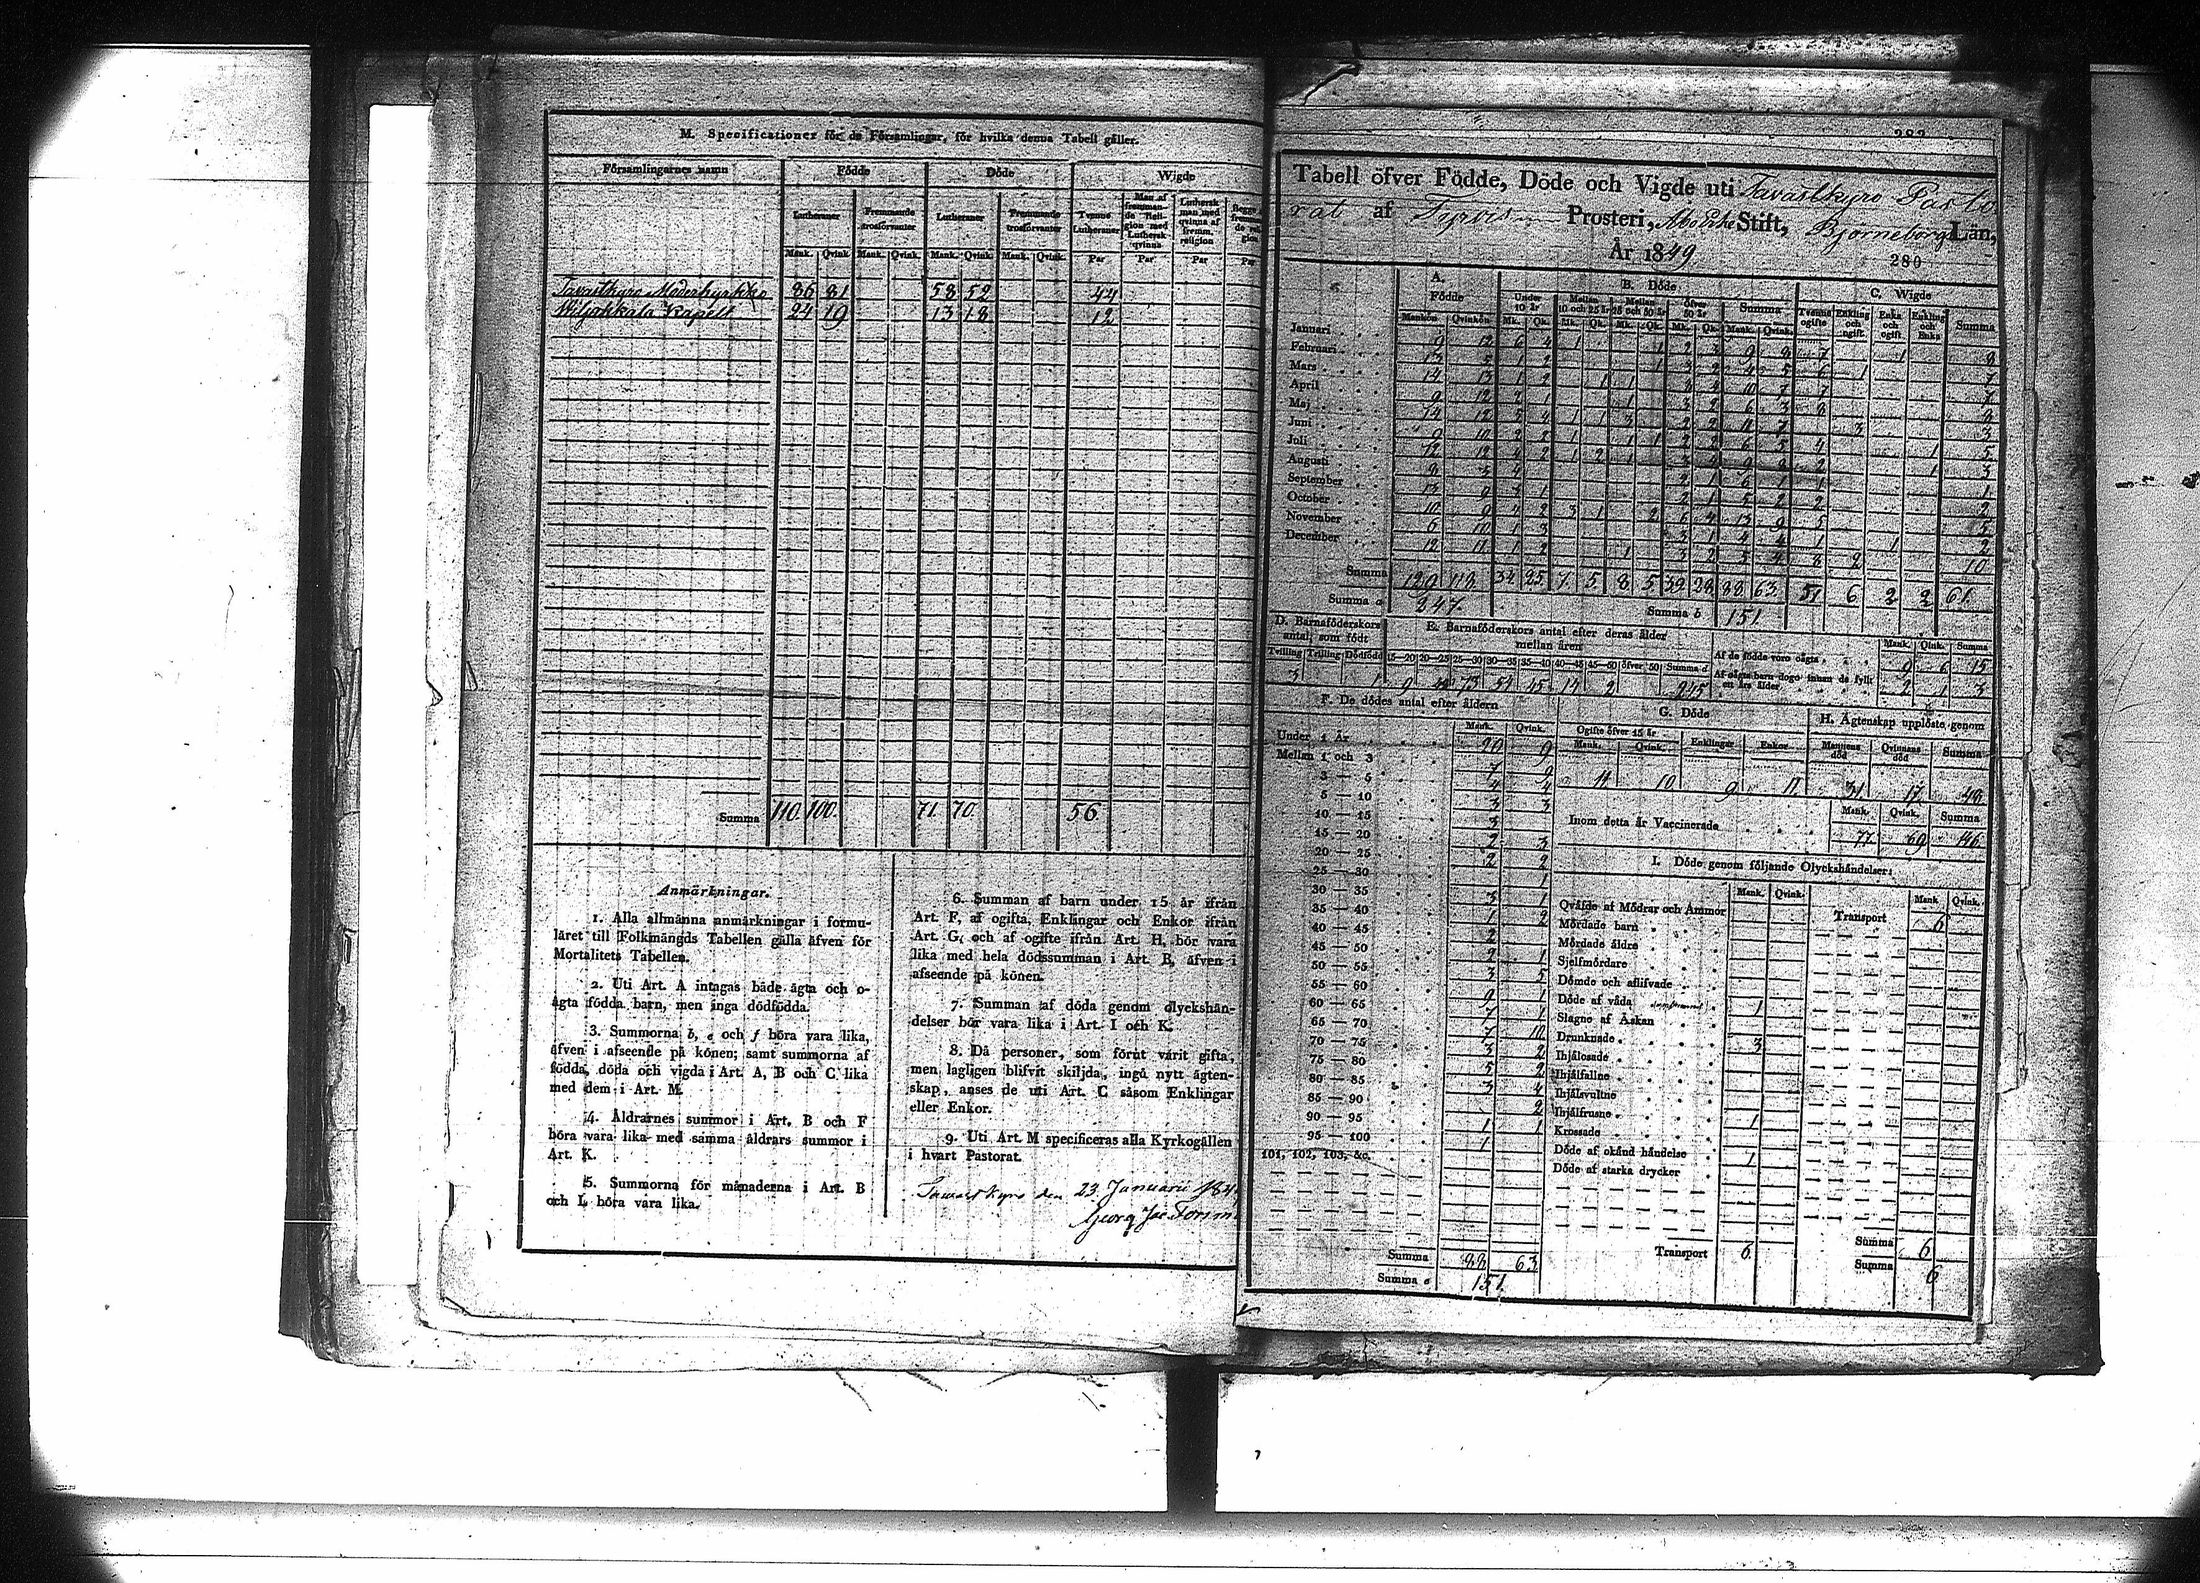 M. Specificationer för de Församlingar, för hvilka denna Tabell gäller.
Församlingarnes namn Födde Döde Wigde
Lutheraner Fremmande trosförvanter Lutheraner Fremmande trosförvanter Tvenne Lutheraner Man af fremmande Religion med Luthersk qvinna Luthersk man med qvinna af fremm. religion
Mank. Qvink. Mank. Qvink. Mank. Qvink. Mank. Qvink. Par Par Par Par
Tavastkyro Moderkyrkko 86 81 58 52 44
Wiljakkala Kapell 24 19 13 18 12
Summa 110. 100. 71. 70. 56.
Anmärkningar.
1. Alla allmänna anmärkningar i formu-
läret till Folkmängds Tabellen gälla äfven för
Mortalitets Tabellen.
2. Uti Art. A intagas både ägta och o-
ägta födda barn, men inga dödfödda.
3. Summorna b, e och f böra vara lika,
äfven i afseende på könen; samt summorna af
födda, döda och vigda i Art. A, B och C lika
med dem i Art. M.
4. Åldrarnes summor i Art. B och F
böra vara lika med samma åldrars summor i
Art. K.
5. Summorna för månaderna i Art. B
och L böra vara lika.
6. Summan af barn under 15 år ifrån
Art. F, af ogifta, Enklingar och Enkor ifrån
Art. G, och af ogifte ifrån Art. H, bör vara
lika med hela dödssumman i Art. B, äfven i
afseende på könen.
7. Summan af döda genom olyckshän-
delser bör vara lika i Art. I och K.
8. Då personer, som förut varit gifta,
men lagligen blifvit skiljda, ingå nytt ägten-
skap, anses de uti Art. C såsom Enklingar
eller Enkor.
9. Uti Art. M specificeras alla Kyrkogällen
i hvart Pastorat.
Tawastkyro den 23 Januarii
Georg Jac
282
Tabell öfver Födde, Döde och Vigde uti Tavastkyro Pasto
rat af Tyrvis Prosteri, Abo Erke Stift, Björneborgs Län,
År 1849
280
A. Födde B. Döde C. Wigde
Under 10 år Mellan 10 och 25 år Mellan 25 och 50 år öfver 50 år Summa Tvenne ogifte Enkling och ogift Enka och ogift Enkling och Enka Summa
Mankön Qvinkön Mk. Qk. Mk. Qk. Mk. Qk. Mk. Qk. Mank. Qvink.
Januari 9 12 6 4 1 1 2 3 9 8 7 1 8
Februari 13 5 1 2 1 3 2 4 5 6 1 7
Mars 14 13 1 2
April 9 12 2 1 1 3 2 6 3 8
Maj 14 12 5 4 1 1 3 2 2 11 7 3 3
Juni 9 10 2 2 1 1 1 2 2 6 5 4 1 5
Juli 12 12 4 2 1 2 1
Augusti 8 3 4 2 1 6 1 1 1
September 13 9 3 1 2 1 5 2 2 2
October 10 9 4 2 3 1 2 6 4 13 9 5 5
November 6 10 1 3 3 1 4 4 1 1 2
December 12 11 1 2 1 3 2 5 4 8 2 10
Summa 129 118 34 25 7 5 8 5 39 28 88 63 51 6 2 2 61
Summa a 247. Summa b 151
D. Barnaföderskors antal, som födt
Tvilling Trilling Dödfödd
3 1
E. Barnaföderskors antal efter deras ålder mellan åren
15—20 20—25 25—30 30—35 35—40 40—45 45—50 öfver 50 Summa d
9 73 54 45 14 2 245
Mank. Qink. Summa
Af de födda voro oägta 9 6 15
Af oägta barn dogo innan de fyllt ett års ålder 2 1 3
F. De dödes antal efter åldern
Mank. Qvink.
Under 1 År 20 9
Mellan 1 och 3 7 9
3 — 5 4 4
5 — 10 3 3
10 — 15 3
15 — 20 2 3
20 — 25 2 2
25 — 30 1
30 — 35 3 1
35 — 40 1 2
40 — 45 2
45 — 50 2 1
50 — 55 3 5
55 — 60 9 1
60 — 65 7 1
65 — 70 7 10
70 — 75 3 2
75 — 80 5 2
80 — 85 3 4
85 — 90 2
90 — 95 1 1
95 — 100 1
101, 102, 103, &c.
Summa 88 63
Summa e 151.
G. Döde
Ogifte öfver 15 år Enklingar Enkor
Mank. Qvink.
14 10 9 11
H. Ägtenskap upplöste genom
Mannens död Qvinnans död Summa
31 17 48
Mank. Qvink. Summa
Inom detta år Vaccinerade 77 69 146
I. Döde genom följande Olyckshändelser:
Mank. Qvink. Mank. Qvink.
Qväfde af Mödrar och Ammor Transport 6
Mördade barn
Mördade äldre
Sjelfmördare
Dömde och aflifvade
Döde af våda 1
Slagne af Åskan
Drunknade 3
Ihjälosade
Ihjälfallne
Ihjälsvultne
Ihjälfrusne 1
Krossade
Döde af okänd händelse 1
Döde af starka drycker
Transport 6 Summa 6
Summa 6